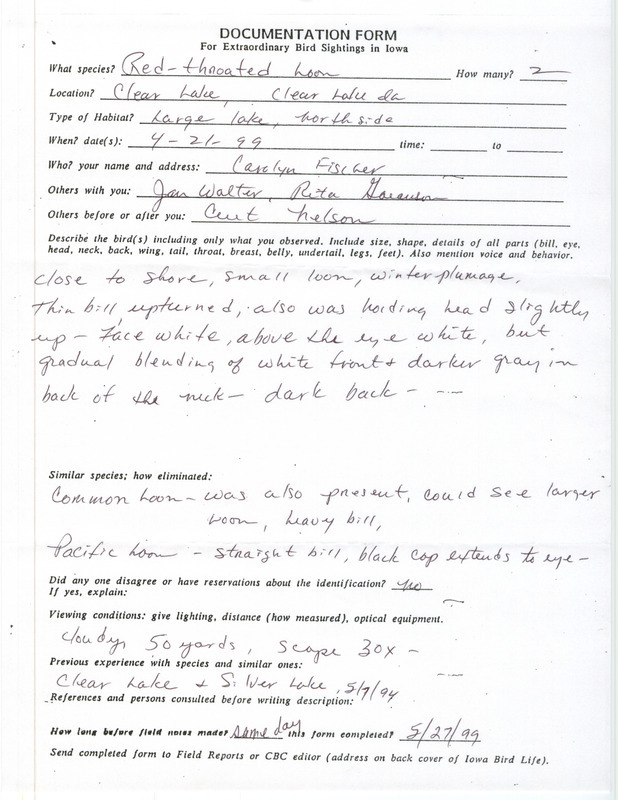 DOCUMENTATION FORM
For Extraordinary Bird Sightings in Iowa
What species? Red-throated Loon How many? 2
Location? Clear Lake, Clear Lake Ia
Type of Habitat? Large lake, north side
When? date(s): 4-21-99 time: to
Who? your name and address: Carolyn Fischer
Others with you: Jan Walter, Rita Goranson
Others before or after you: Curt Nelson
Describe the bird(s) including only what you observed. Include size, shape, details of all parts (bill, eye,
head, neck, back, wing, tail, throat, breast, belly, undertail, legs, feet). Also mention voice and behavior.
close to shore, small loon, winter plumage,
Thin bill, upturned, also was holding head slightly
up - Face white, above the eye white, but
gradual blending of white front & darker gray in
back of the neck - dark back - ---
Similar species; how eliminated:
Common Loon - was also present, could see larger
Loon, heavy bill,
Pacific Loon - straight bill, black cap extends to eye -
Did any one disagree or have reservations about the identification? no
If yes, explain:
Viewing conditions: give lighting, distance (how measured), optical equipment.
cloudy, 50 yards, scope 30x -
Previous experience with species and similar ones:
Clear Lake & Silver Lake, 5/7/94
References and persons consulted before writing description:
How long before field notes made? same day this form completed? 5/27/99
Send completed form to Field Reports or CBC editor (address on back cover of Iowa Bird Life).